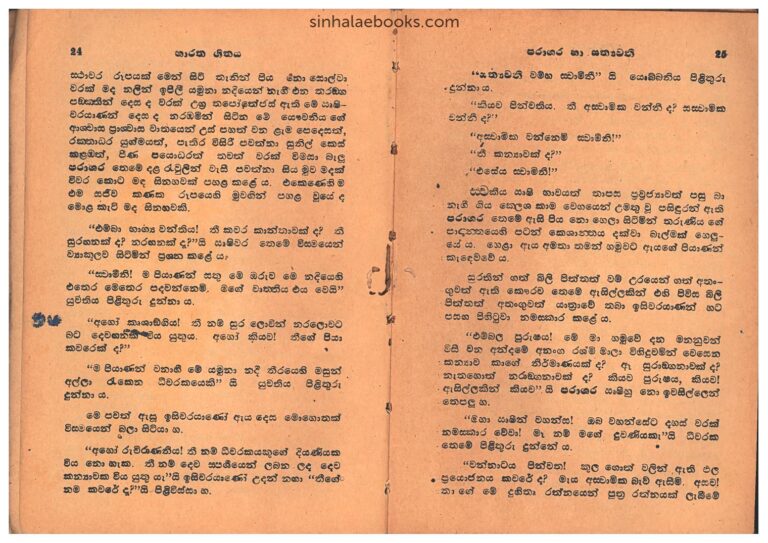 sinhalaebooks.com
24 භාරත ගීතය
ස්ථාවර රූපයක් මෙන් සිටි තැනින් පිය නො සොල්වා
වරක් මද නලින් ඉපිලී යමුනා නදියෙන් නැගී එන තරඟ
පඬ්ක්තීන් දෙස ද වරක් උග්‍ර තපෝතේජස් ඇති මේ ඍෂි
වරයාණන් දෙස ද නරඹමින් සිටින මේ යෞවනියගේ
ආශ්වාස ප්‍රාශ්වාස වාතයෙන් උස් පහත් වන ළැම පෙදෙසත්,
රක්තාධර යුග්මයත්, පැතිර විසිරී පවත්නා සුනිල් කෙස්
කළඹත්, පීණ පයොධරත් තවත් වරක් විමසා බැලූ
පරාශර තෙමේ දළ රැවුලින් වැසී පවත්නා සිය මුව මදක්
විවර කොට මද සිනහවක් පහළ කළේ ය. එකෙණෙහි ම
එම සජීව කණක රූපයෙහි මුවගින් පහළ වූයේ ද
මොළ කැටි මද සිනහවකි.
"එම්බා භාග්‍ය වන්තිය! තී කවර කාන්තාවක් ද? තී
සුරඟනක් ද? නරඟනක් ද?"යි ඍෂිවර තෙමේ විස්මයෙන්
ව්‍යාකූලව සිටිමින් ප්‍රශ්න කළේ ය.
"ස්වාමීනි! ම පියාණන් සතු මේ ඔරුව මේ නදියෙහි
එතෙර මෙතෙර පදවන්නෙමි. මගේ වෘත්තිය එය වෙයි"
යුවතිය පිළිතුරු දුන්නා ය.
"අහෝ කෘශාංගිය! තී නම් සුර ලොවින් නරලොවට
බට දෙවඟනක් විය යුතුය. අහෝ කියව! තීගේ පියා
කවරෙක් ද?"
"ම පියාණන් වනාහී මේ යමුනා නදී තීරයෙහි මසුන්
අල්ලා රැකෙන ධීවරකයෙකි" යි යුවතිය පිළිතුරු
දුන්නා ය.
මේ පවත් ඇසූ ඉසිවරයාණෝ ඇය දෙස මොහොතක්
විස්මයෙන් බලා සිටියා හ.
"අහෝ රුචිරාණනිය! තී නම් ධීවරකයකුගේ දියණියක
විය නො හැක. තී නම් දෙව් සැපතියෙන් ලබන ලද දෙව්
කන්‍යාවක විය යුතු යැ"යි ඉසිවරයාණෝ උදන් නහා "තීගේ
නම කවරේ ද?"යි පිළිවිස්සා හ.
පරාශර හා සත්‍යවතී 25
"සත්‍යවතී වම්හ ස්වාමීනි" යි යෞබ්බනිය පිළිතුරු
දුන්නා ය.
"කියව පින්වතිය. තී අස්වාමික වන්නී ද? සස්වාමික
වන්නී ද?"
"අස්වාමික වන්නෙමි ස්වාමීනි!"
"තී කන්‍යාවක් ද?"
"එසේය ස්වාමීනි!"
ස්වකීය ඍෂි භාවයත් තාපස ප්‍රව්‍රජ්‍යාවත් පසු බා
නැගී ගිය කෙලශ කාම වේගයෙන් උමතු වූ පසිඳුරන් ඇති
පරාශර තෙමේ ඇසි පිය නො හෙලා සිටිමින් තරුණිය ගේ
පාදාන්තයෙහි පටන් කෙශාන්තය දක්වා බැල්මක් හෙලු-
යේ ය. හෙළා ඇය අමතා තමන් හමුවට ඇයගේ පියාණන්
කැඳෙව්වේ ය.
සුරතින් ගත් බිලී පිත්තත් වම් උරයෙන් ගත් අතං-
ගුවත් ඇති කෛරව තෙමේ ඇසිල්ලකින් එහි පිවිස බිලී
පිත්තත් අතංගුවත් යාත්‍රාවේ තබා ඉසිවරයාණන් හට
පසඟ පිහිටුවා නමස්කාර කළේ ය.
"එම්බල පුරුෂය! මේ මා හමුවේ දන මනනුවන්
වසී වන අන්දමේ අනංග රශ්මි මාලා විහිදුවමින් වෙසෙන
කන්‍යාව කාගේ නිර්මාණයක් ද? ඈ සුරාඞ්ගනාවක් ද?
නැතහොත් නරාඞ්ගනාවක් ද? කියව පුරුෂය, කියව!
ඇසිල්ලකින් කියව" යි පරාශර ඍෂිහු නො ඉවසිල්ලෙන්
තෙපලූ හ.
"ඔහා ඍෂින් වහන්ස! ඔබ වහන්සේට දහස් වරක්
නමස්කාර වේවා! මෑ නම් මගේ දුවණියකැ"යි ධීවරක
තෙමේ පිළිතුරු දුන්නේ ය.
"වන්නාටය පින්වත! කුල ගොත් වලින් ඇති ඵල
ප්‍රයෝජනය කවරේ ද? මැය අස්වාමික බැව් ඇසීමි. අසව!
තා ගේ මේ දුහිතෘ රත්නයෙන් පුත්‍ර රත්නයක් ලැබීමේ